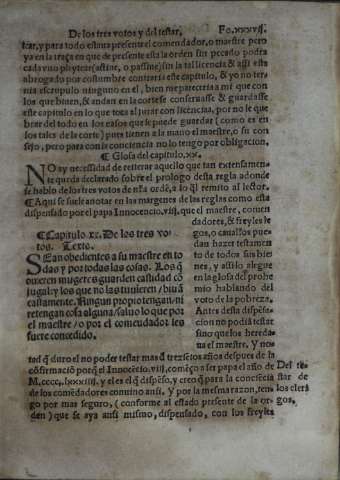 De los tres votos y del testar, Fo.xxxvij.
tear, y para todo estuuo presente el comendador, o maestre pero
ya en la traça en que de presente esta la orden sin pecado podra
cada vno
abrogado por costumbre contraria este capitulo, & yo no ter-
nia escrupulo ninguno en el, bien me pareceria a mi que con
los que biuen, & andan en la corte se conseruasse & guardasse
este capitulo en lo que toca al jurar con licencia, por no le que
brar del todo en los casos que se puede guardar (como es en
los tales de la corte) pues tienen a la mano el maestre, o su con
sejo, pero para en conciencia no lo tengo por obligacion.
¶ Glosa del capitulo.xx.
NO ay necessidad de reiterar aquello que tan extensamen-
te queda declarado sobre el prologo desta regla adonde
se hablo de los tres votos de nr̃a ordẽ, a lo q̃l remito al lector.
¶ Aqui se suele anotar en las margenes de las reglas como esta
dispensado por el papa Innocencio.viij. que el maestre, comen
dadores, & freyles le
gos, o caualleros pue-
dan hazer testamen
to de todos sus bie-
nes, y assi lo alegue
en la glosa del prohe
mio hablando del
voto de la pobreza.
Antes desta dispẽsa-
cion no podia testar
sino que los hereda-
ua el maestre. Y no-
¶ Capitulo xx. De los tres vo-
tos. Texto.
SEan obedientes a su maestre en to-
das y por todas las cosas. Los q̃
quieren mugeres guarden castidad cõ
jugal: y los que no las tuuieren / biuã
castamente. Ningun propio tengan / ni
retengan cosa alguna / saluo lo que por
el maestre / o por el comendador les
fuere concedido.
tad q̃ duro el no poder testar mas d̃ trezietos años despues de la
cõfirmaciõ porq̃ el Innocẽtio.viij, comẽço a ser papa el año de
M.cccc.lxxxiiij. y eles el q̃ dispẽso, y creo q̃ para la conciẽcia
de los comẽdadores conuino ansi. Y por la mesma razon, ten
go por mas seguro, (conforme al estado presente de la or-
den) que se aya ansi mismo, dispensado, con los freyles
Del te-
star de
los cleri
gos,